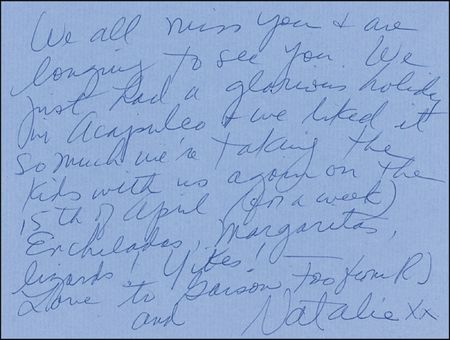 We all miss you + are
longing to see you. We
just had a glorious holiday
in Acapulco + we liked it
so much we're taking the
kids with us again on the
15th of April (for a week)
Enchiladas, Margaritas,
lizards! Yikes!
Love to
and Natalie xx